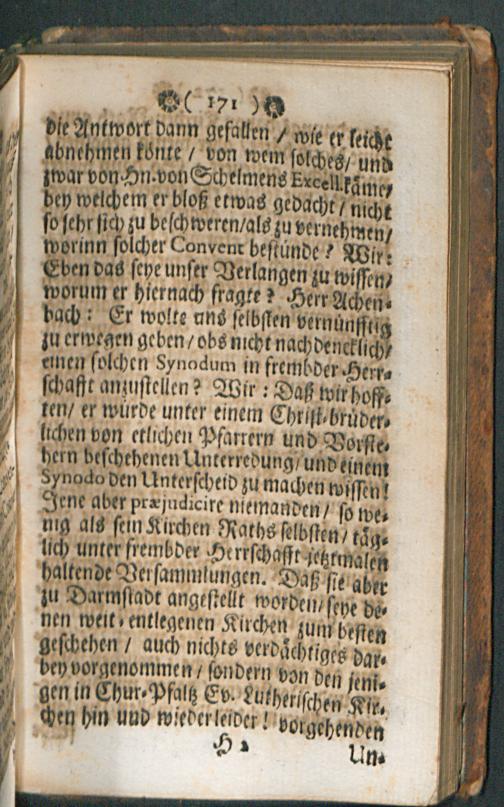 ( 171 )
die Antwort dann gefallen / wie er leicht
abnehmen könte / von wem solches / und
zwar von Hn. von Schelmens Excell. käme /
bey welchem er bloß etwas gedacht / nicht
so sehr sich zu beschweren / als zu vernehmen /
worinn solcher Convent bestünde ? Wir :
Eben das seye unser Verlangen zu wissen /
worum er hiernach fragte ? Herr Achen-
bach : Er wolte uns selbsten vernünfftig
zu erwegen geben / obs nicht nachdencklich /
einen solchen Synodum in frembder Herr-
schafft anzustellen ? Wir : Daß wir hoff-
ten / er würde unter einem Christ-brüder-
lichen von etlichen Pfarrern und Vorste-
hern beschehenen Unterredung / und einem
Synodo den Unterscheid zu machen wissen !
Jene aber præjudicire niemanden / so we-
nig als sein Kirchen Raths selbsten / täg-
lich unter frembder Herrschafft jetztmalen
haltende Versammlungen. Daß sie aber
zu Darmstadt angestellt worden / seye de-
nen weit-entlegenen Kirchen zum besten
geschehen / auch nichts verdächtiges dar-
bey vorgenommen / sondern von den jeni-
gen in Chur-Pfaltz Ev. Lutherischen Kir-
chen hin uud wieder leider ! vorgehenden
H 2
Un-